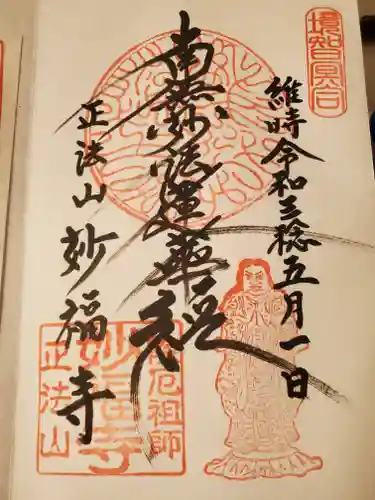 境智冥合
維時令和三稔五月一日
南無妙法蓮華経
正法山 妙福寺
厄祖師
妙福寺
正法山